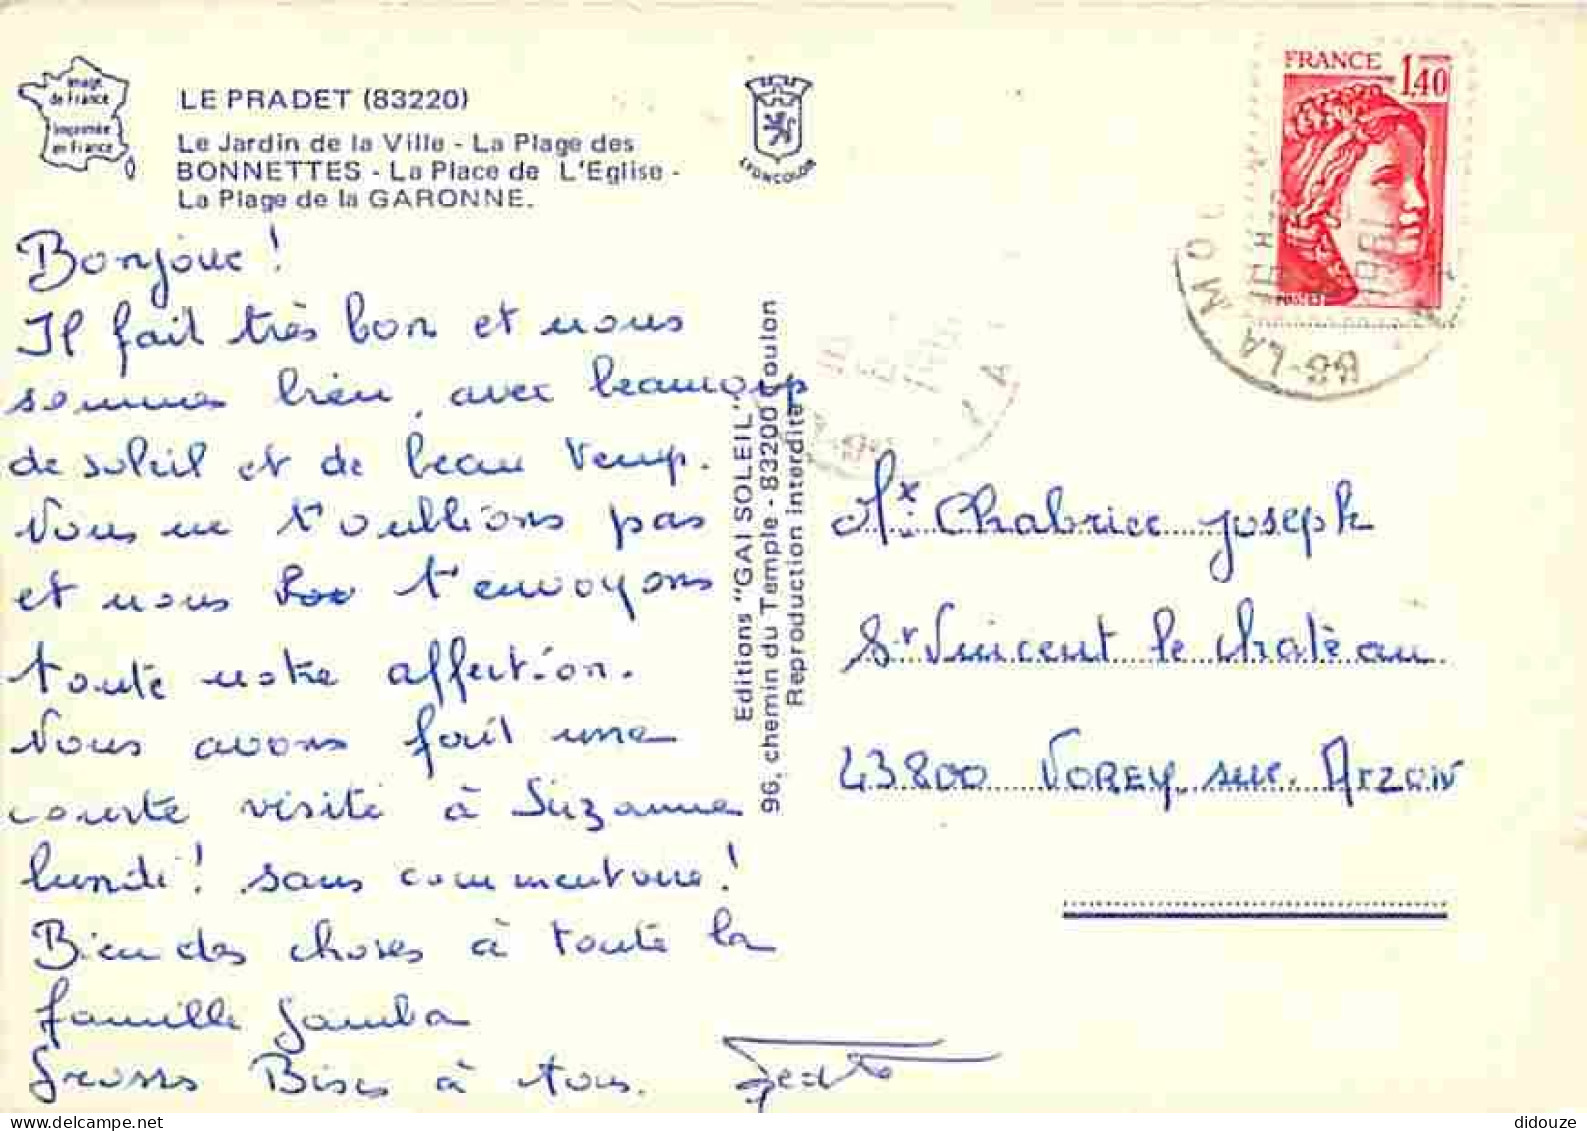 Image
de France
Imprimée
en France
LE PRADET (83220)
Le Jardin de la Ville - La Plage des
BONNETTES - La Place de L'Eglise -
La Plage de la GARONNE.
LYONCOLOR
FRANCE 1,40
1981
Bonjour!
Il fait très bon et nous
sommes bien, avec beaucoup
de soleil et de beau temp.
Nous ne t'oublions pas
et nous t'envoyons
toute notre affection.
Nous avons fait une
courte visite à Suzanne
lundi! sans commentaire!
Bien des choses à toute la
famille Samba
Grosses Bises à tous.
Editions "GAI SOLEIL"
96, chemin du Temple - 83200 Toulon
Reproduction interdite
Mr Chabrier Joseph
St Vincent le chatèau
43800 VOREY sur Arzon
didouze